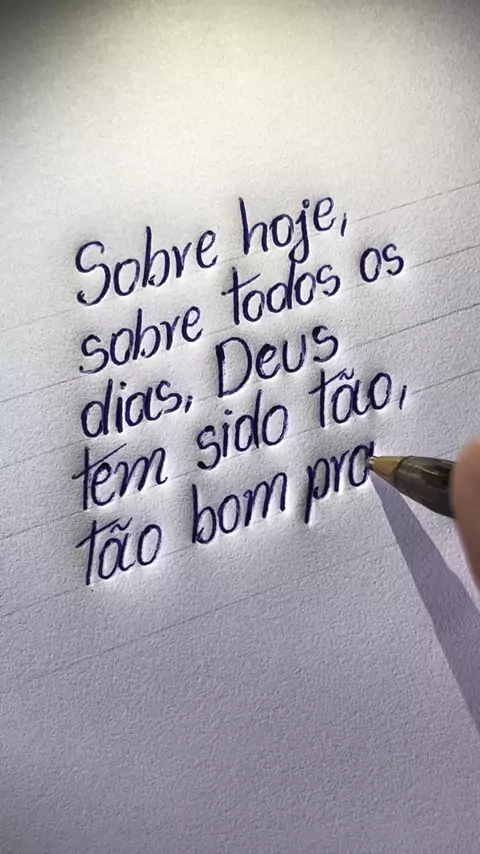 Sobre hoje,
sobre todos os
dias, Deus
tem sido tão,
tão bom pra